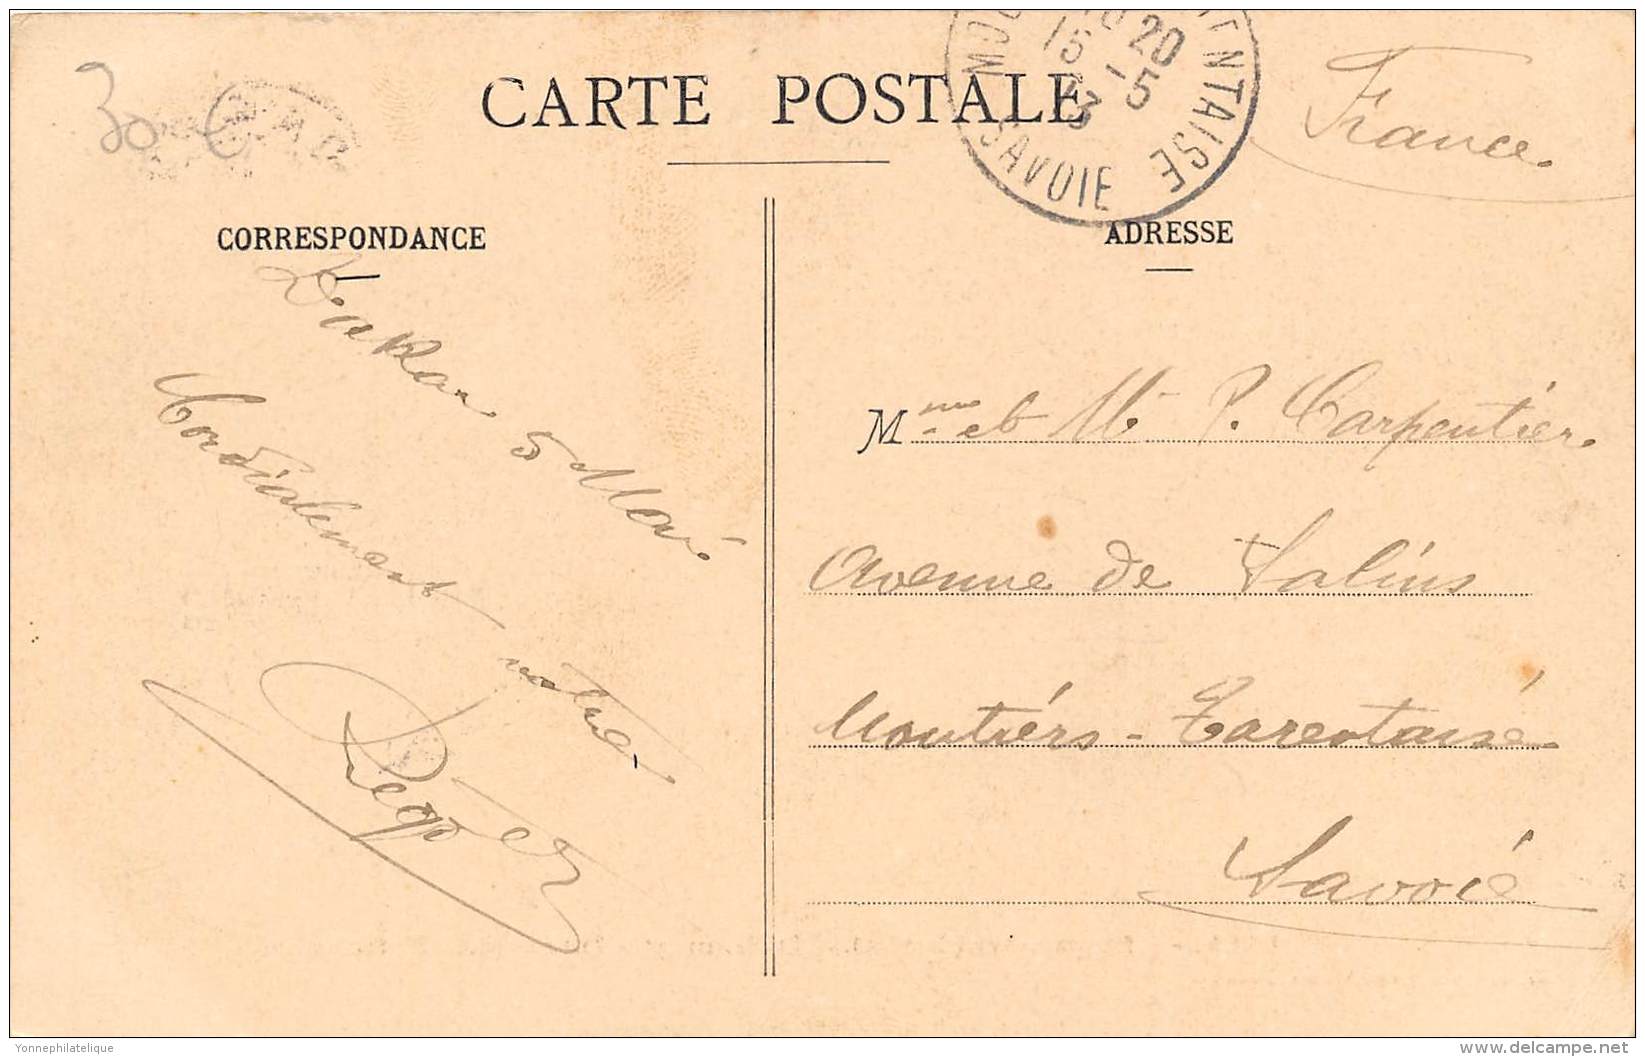 CARTE POSTALE
MOU ENTAISE
20
15 -5
13
SAVOIE
France.
30 €
CORRESPONDANCE
Dakar 5 Mai
Cordialement votre
ADRESSE
Mme et Mr P. Carpentier.
Avenue de Salins
Moutiérs - Tarentaise
Savoie
Yonnephilatelique
delcampe.net